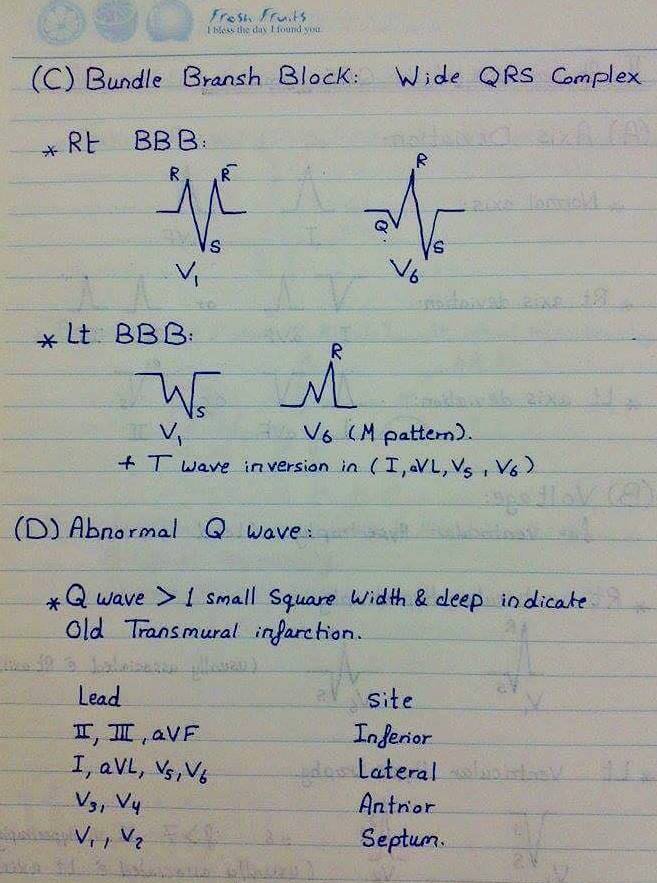 Fresh Fruits
I bless the day I found you.
(C) Bundle Bransh Block: Wide QRS Complex
* Rt BBB:
R R̄ R
S Q S
V₁ V₆
* Lt BBB:
R
S
V₁ V₆ (M pattern).
+ T wave inversion in (I, aVL, V₅, V₆)
(D) Abnormal Q wave:
* Q wave > 1 small Square Width & deep indicate
Old Transmural infarction.
Lead Site
II, III, aVF Inferior
I, aVL, V₅, V₆ Lateral
V₃, V₄ Antrior
V₁, V₂ Septum.